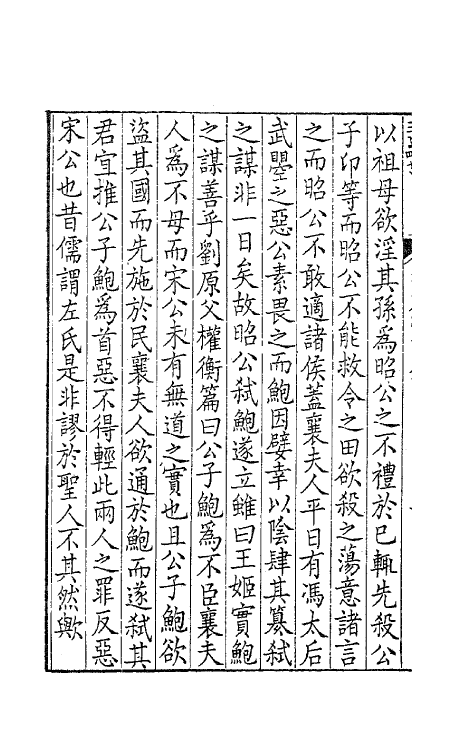 以祖母欲淫其孫為昭公之不禮於已輒先殺公
子卬等而昭公不能救令之田欲殺之蕩意諸言
之而昭公不敢適諸侯蓋襄夫人平日有馮太后
武曌之惡公素畏之而鮑因嬖幸以陰肆其篡弒
之謀非一日矣故昭公弒鮑遂立雖曰王姬實鮑
之謀善乎劉原父權衡篇曰公子鮑為不臣襄夫
人為不母而宋公未有無道之實也且公子鮑欲
盜其國而先施於民襄夫人欲通於鮑而遂弒其
君宜推公子鮑為首惡不得輕此兩人之罪反惡
宋公也昔儒謂左氏是非謬於聖人不其然歟